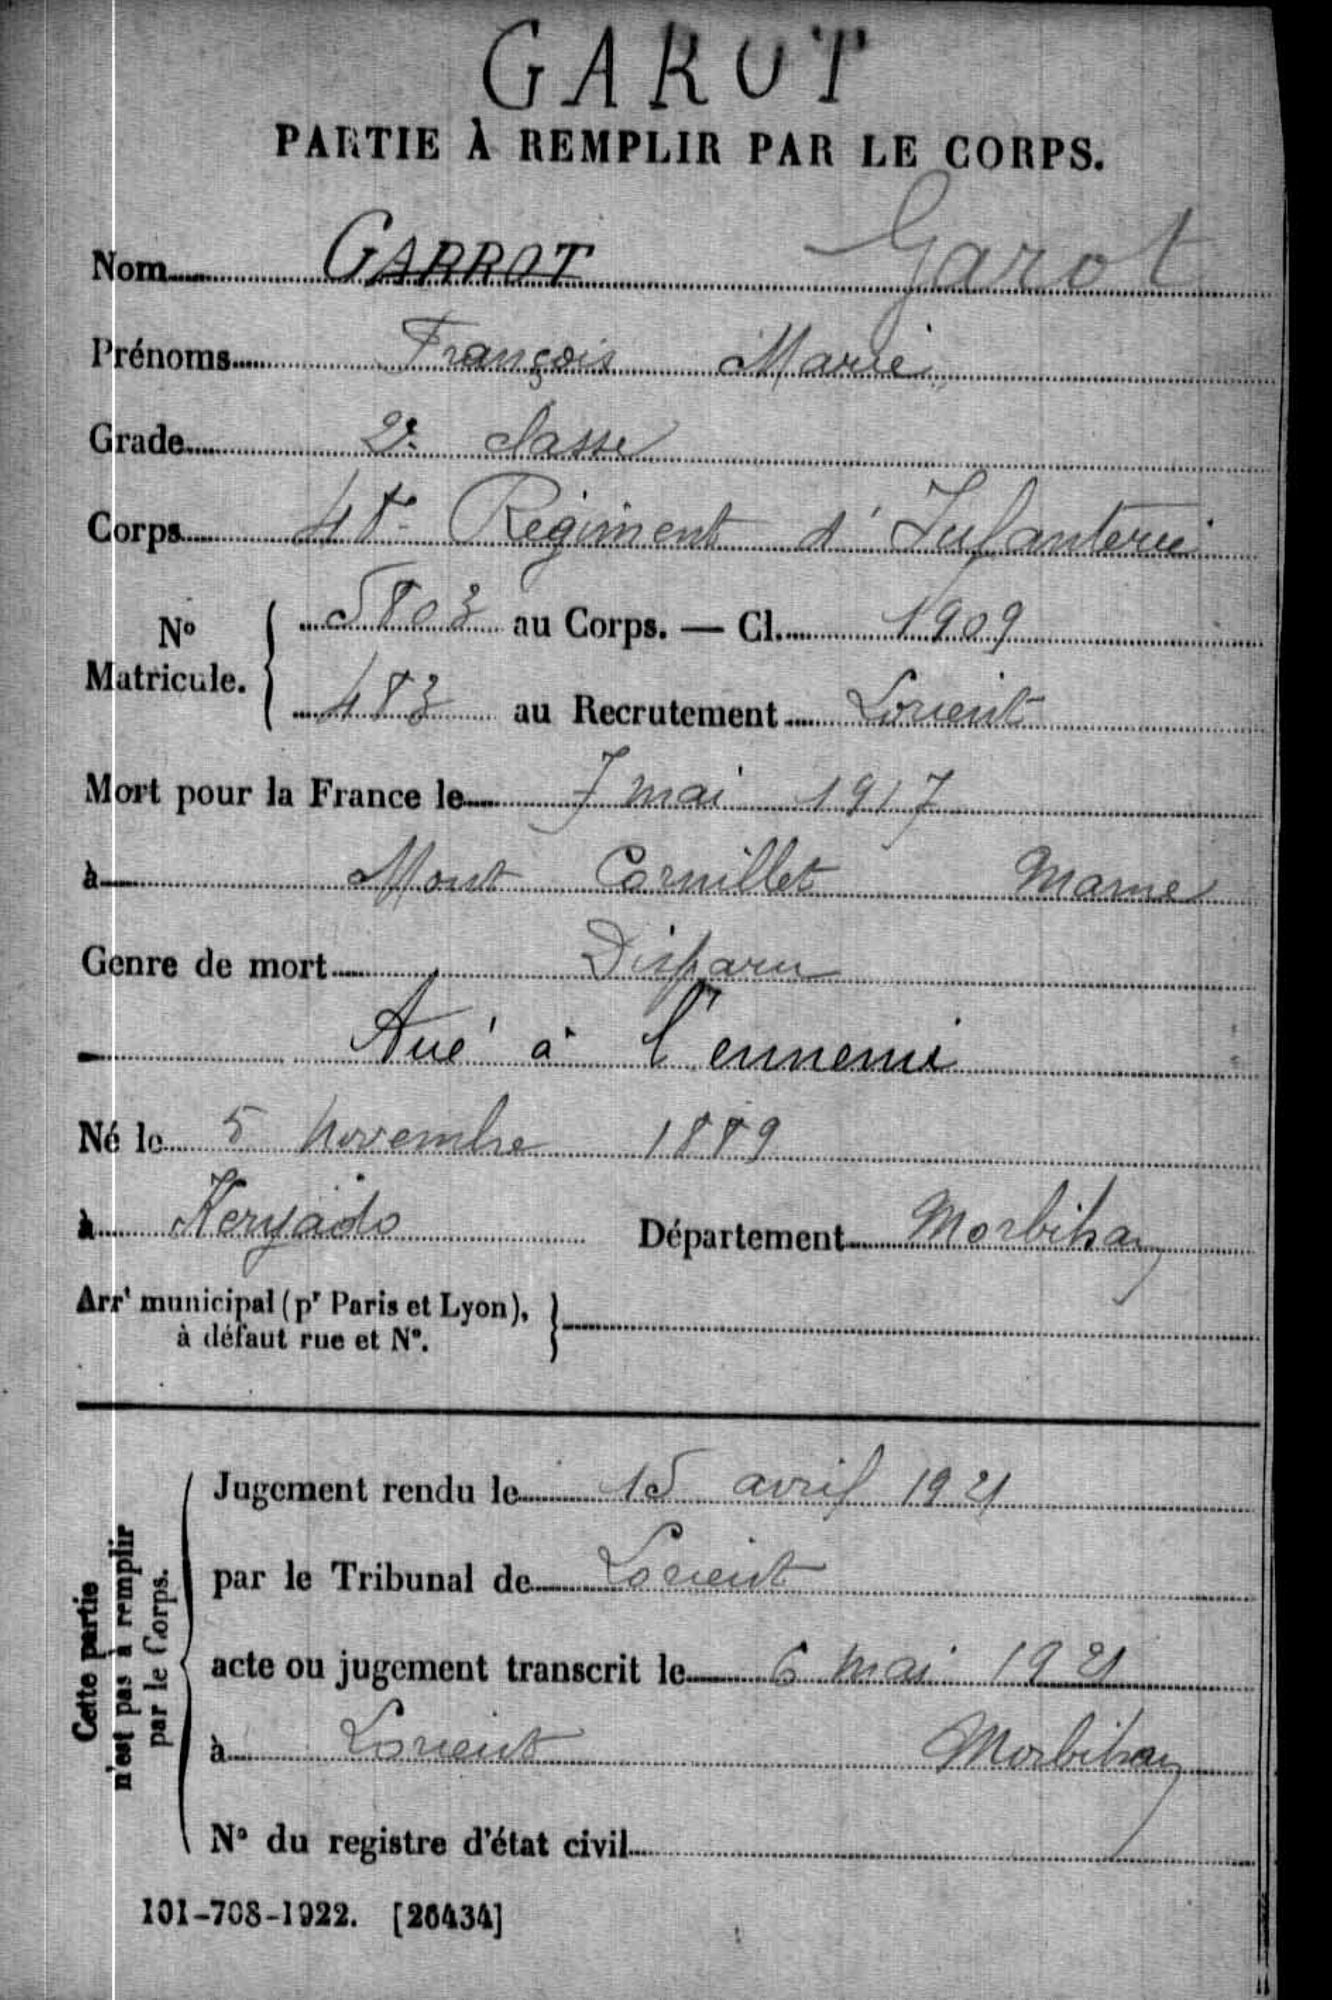 GAROT
PARTIE À REMPLIR PAR LE CORPS.
Nom GARROT Garot
Prénoms François Marie
Grade 2e classe
Corps 48e Régiment d'Infanterie
No Matricule. { 5803 au Corps. — Cl. 1909
483 au Recrutement Lorient
Mort pour la France le 7 mai 1917
à Mont Cornillet Marne
Genre de mort Disparu
Tué à l'ennemi
Né le 5 novembre 1889
à Keryado Département Morbihan
Arrt municipal (pr Paris et Lyon), }
à défaut rue et No.
Cette partie
n'est pas à remplir
par le Corps.
Jugement rendu le 15 avril 1921
par le Tribunal de Lorient
acte ou jugement transcrit le 6 mai 1921
à Lorient Morbihan
No du registre d'état civil
101-708-1922. [26434]